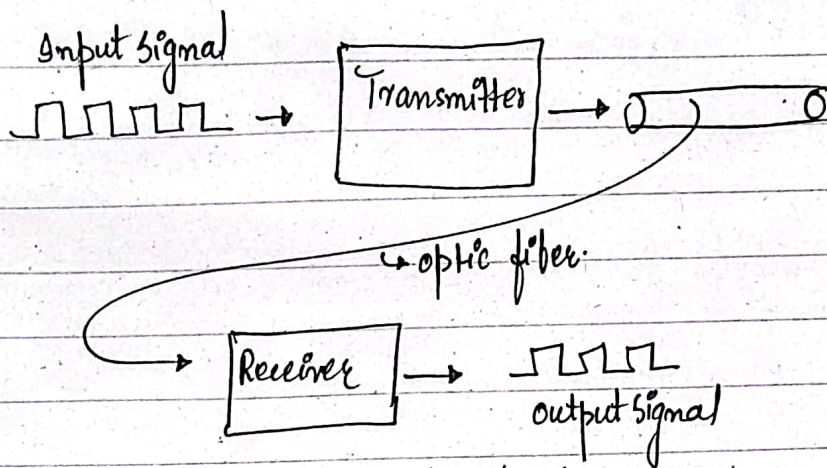 Input Signal
Transmitter
optic fiber.
Receiver
output signal